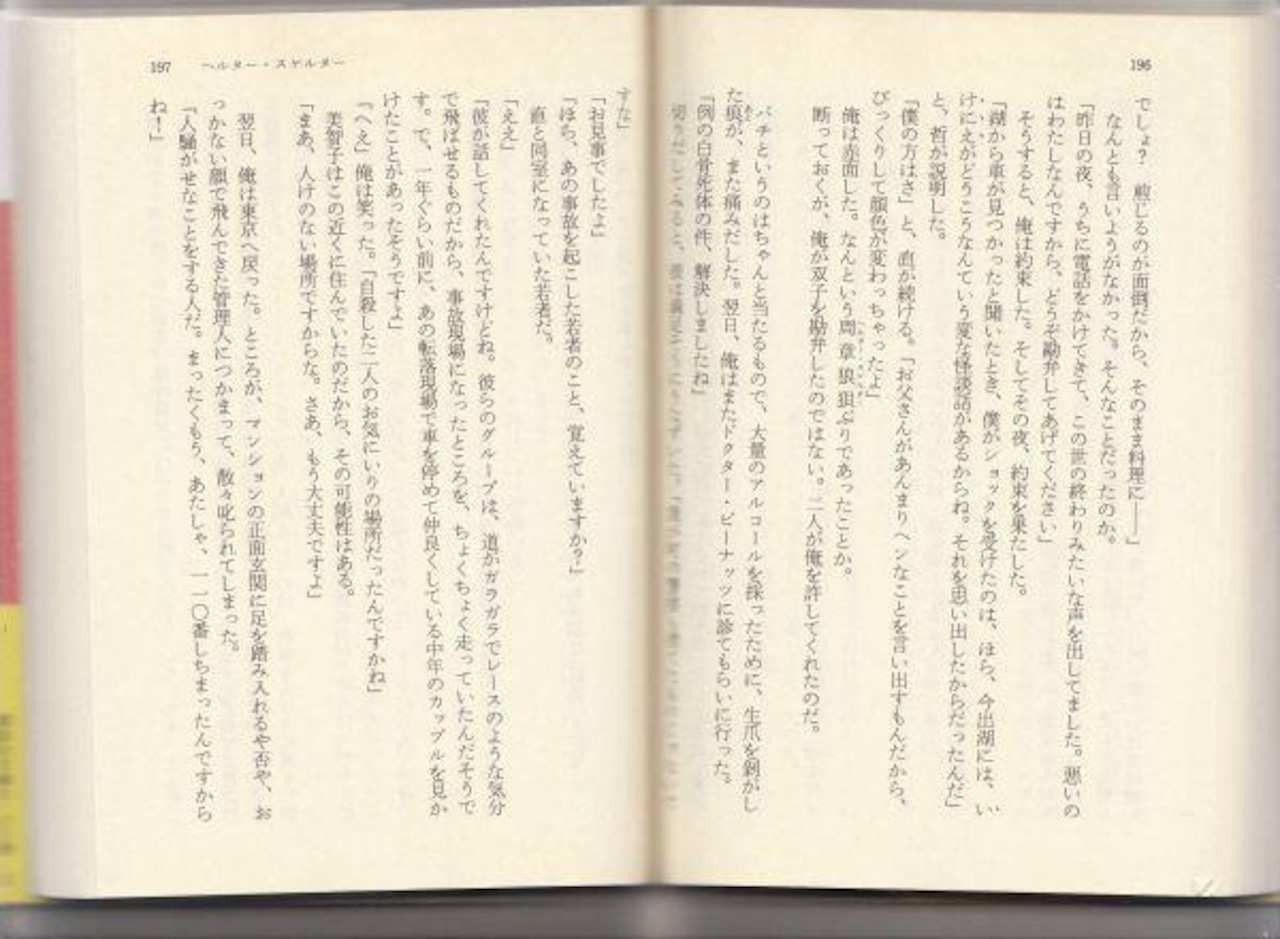 196
でしょ？　煎じるのが面倒だから、そのまま料理に――」
なんとも言いようがなかった。そんなことだったのか。
「昨日の夜、うちに電話をかけてきて、この世の終わりみたいな声を出してました。悪いの
はわたしなんですから、どうぞ勘弁してあげてください」
そうすると、俺は約束した。そしてその夜、約束を果たした。
「湖から車が見つかったと聞いたとき、僕がショックを受けたのは、ほら、今出湖には、い
けにえがどうこうなんていう変な怪談話があるからね。それを思い出したからだったんだ」
と、哲が説明した。
「僕の方はさ」と、直が続ける。「お父さんがあんまりヘンなことを言い出すもんだから、
びっくりして顔色が変わっちゃったよ」
俺は赤面した。なんという周章狼狽ぶりであったことか。
断っておくが、俺が双子を勘弁したのではない。二人が俺を許してくれたのだ。
バチというのはちゃんと当たるもので、大量のアルコールを採ったために、生爪を剝がし
た痕が、また痛みだした。翌日、俺はまたドクター・ピーナッツに診てもらいに行った。
「例の白骨死体の件、解決しましたね」
切りだしてみると、
197　ヘルター・スケルター
すな」
「お見事でしたよ」
「ほら、あの事故を起こした若者のこと、覚えていますか？」
直と同室になっていた若者だ。
「ええ」
「彼が話してくれたんですけどね。彼らのグループは、道がガラガラでレースのような気分
で飛ばせるものだから、事故現場になったところを、ちょくちょく走っていたんだそうで
す。で、一年ぐらい前に、あの転落現場で車を停めて仲良くしている中年のカップルを見か
けたことがあったそうですよ」
「へえ」俺は笑った。「自殺した二人のお気にいりの場所だったんですかね」
美智子はこの近くに住んでいたのだから、その可能性はある。
「まあ、人けのない場所ですからな。さあ、もう大丈夫ですよ」
翌日、俺は東京へ戻った。ところが、マンションの正面玄関に足を踏み入れるや否や、お
っかない顔で飛んできた管理人につかまって、散々叱られてしまった。
「人騒がせなことをする人だ。まったくもう、あたしゃ、一一〇番しちまったんですから
ね！」